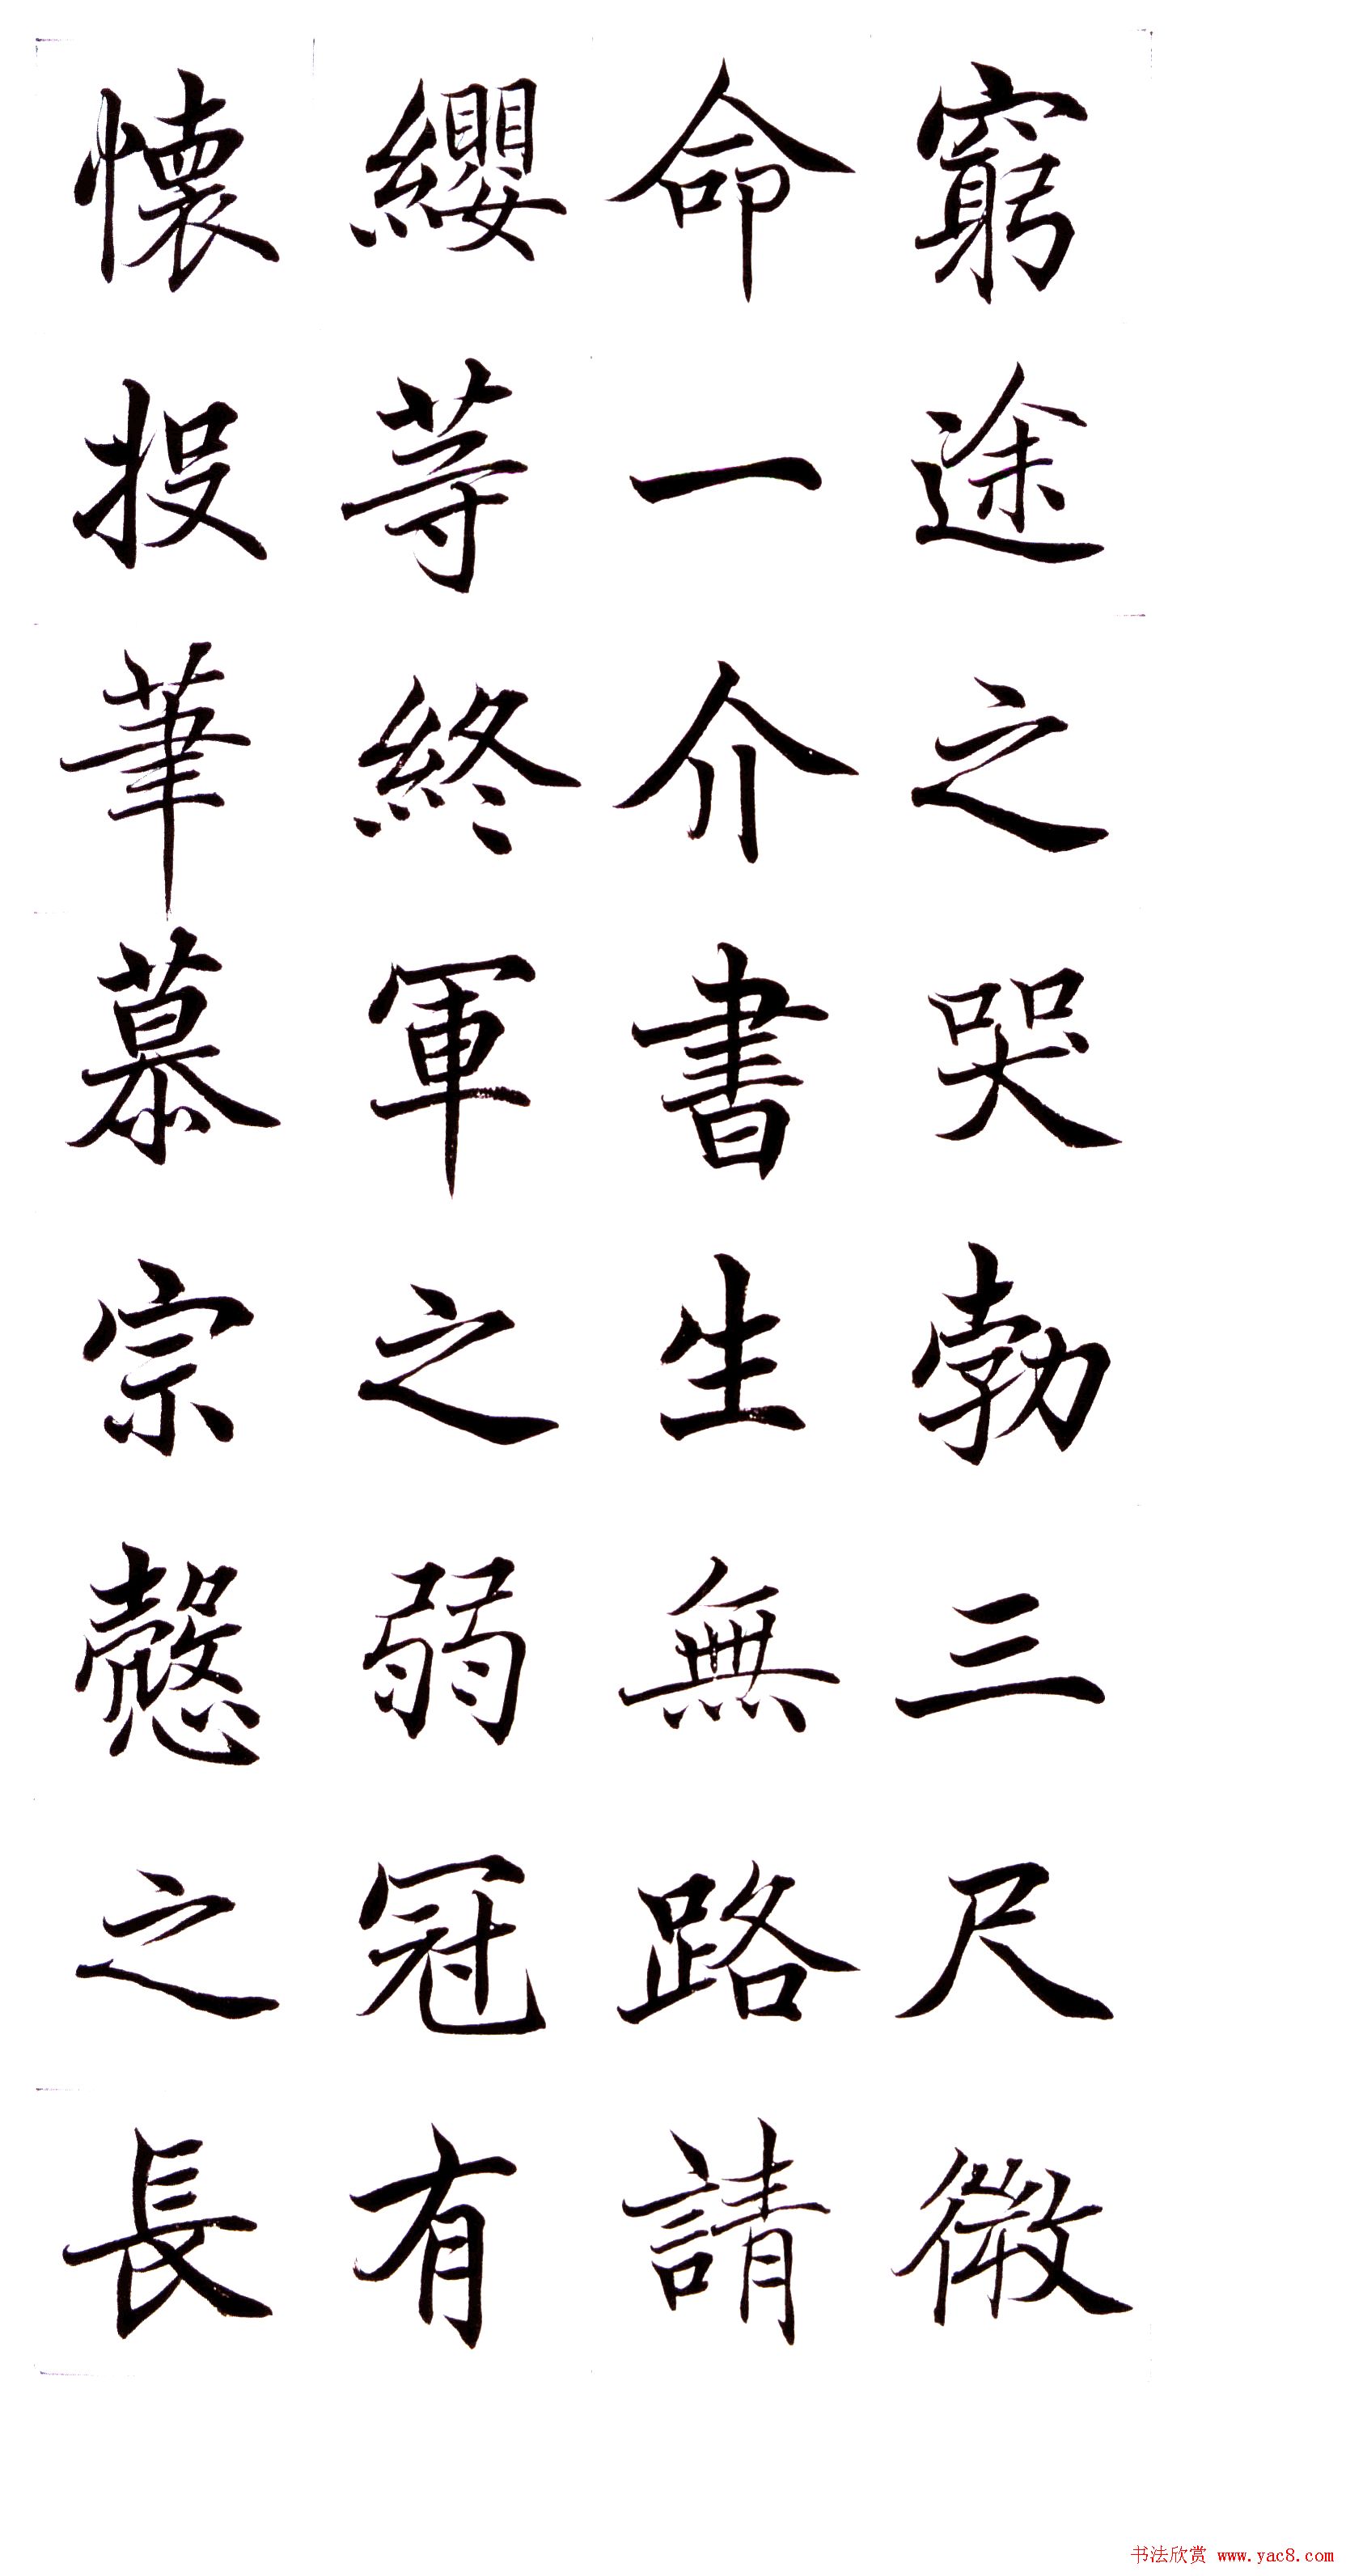 窮途之哭勃三尺微
命一介書生無路請
纓等終軍之弱冠有
懷投筆慕宗愨之長
书法欣赏 www.yac8.com